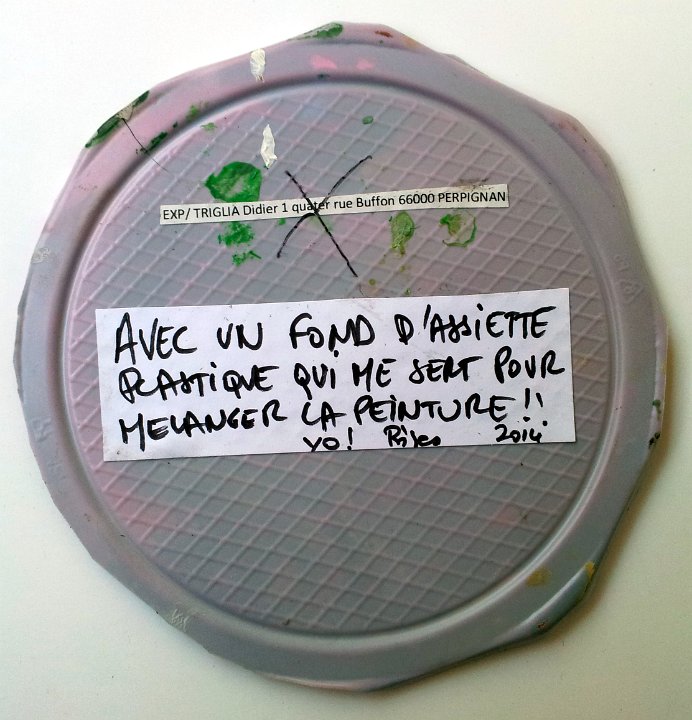 EXP/ TRIGLIA Didier 1 quater rue Buffon 66000 PERPIGNAN
AVEC UN FOND D'ASSIETTE
PLASTIQUE QUI ME SERT POUR
MELANGER LA PEINTURE!!
YO! 2014